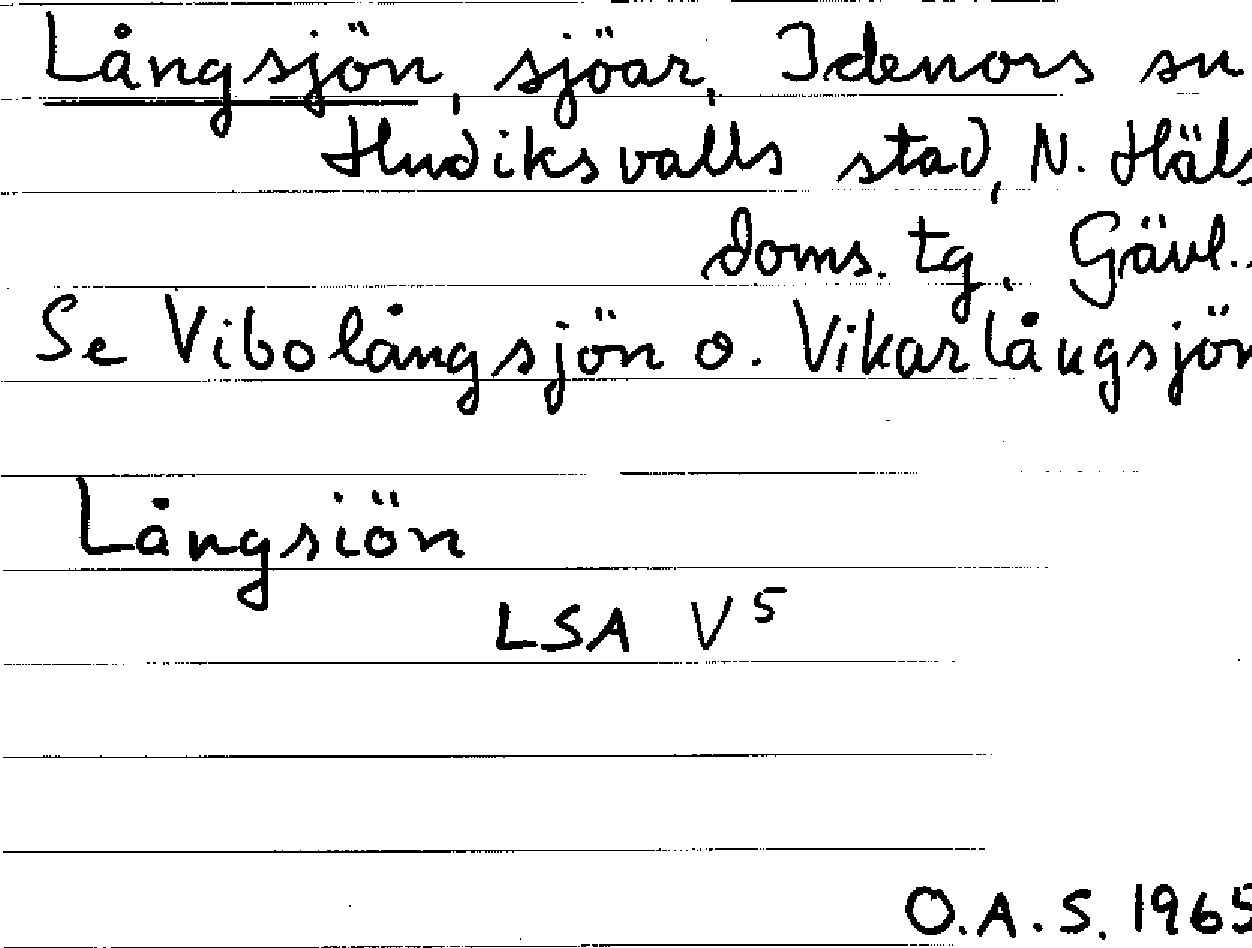 Långsjön, sjöar, Idenors sn
Hudiksvalls stad, N. Häls
doms. tg, Gävl..
Se Vibolångsjön o. Vikarlångsjön
Långsiön
LSA V⁵
O.A.S. 1965